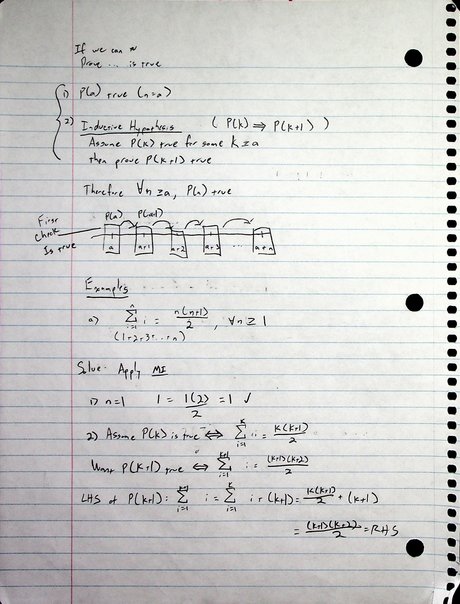 If we can
Prove ... is true
1) P(a) true (n=a)
2) Inductive Hypothesis ( P(k) ⇒ P(k+1) )
Assume P(k) true for some k ≥ a
then prove P(k+1) true
Therefore ∀n ≥ a, P(n) true
P(a) P(a+1)
First
Check
Is true
a a+1 a+2 a+3 ... a+n
Examples
a) ∑_{i=1}^{n} i = n(n+1)/2 , ∀n ≥ 1
(1+2+3+...+n)
Solve: Apply MI
1) n=1 1 = 1(2)/2 = 1 ✓
2) Assume P(k) is true ⇔ ∑_{i=1}^{k} i = k(k+1)/2
Want P(k+1) true ⇔ ∑_{i=1}^{k+1} i = (k+1)(k+2)/2
LHS of P(k+1): ∑_{i=1}^{k+1} i = ∑_{i=1}^{k} i + (k+1) = k(k+1)/2 + (k+1)
= (k+1)(k+2)/2 = RHS